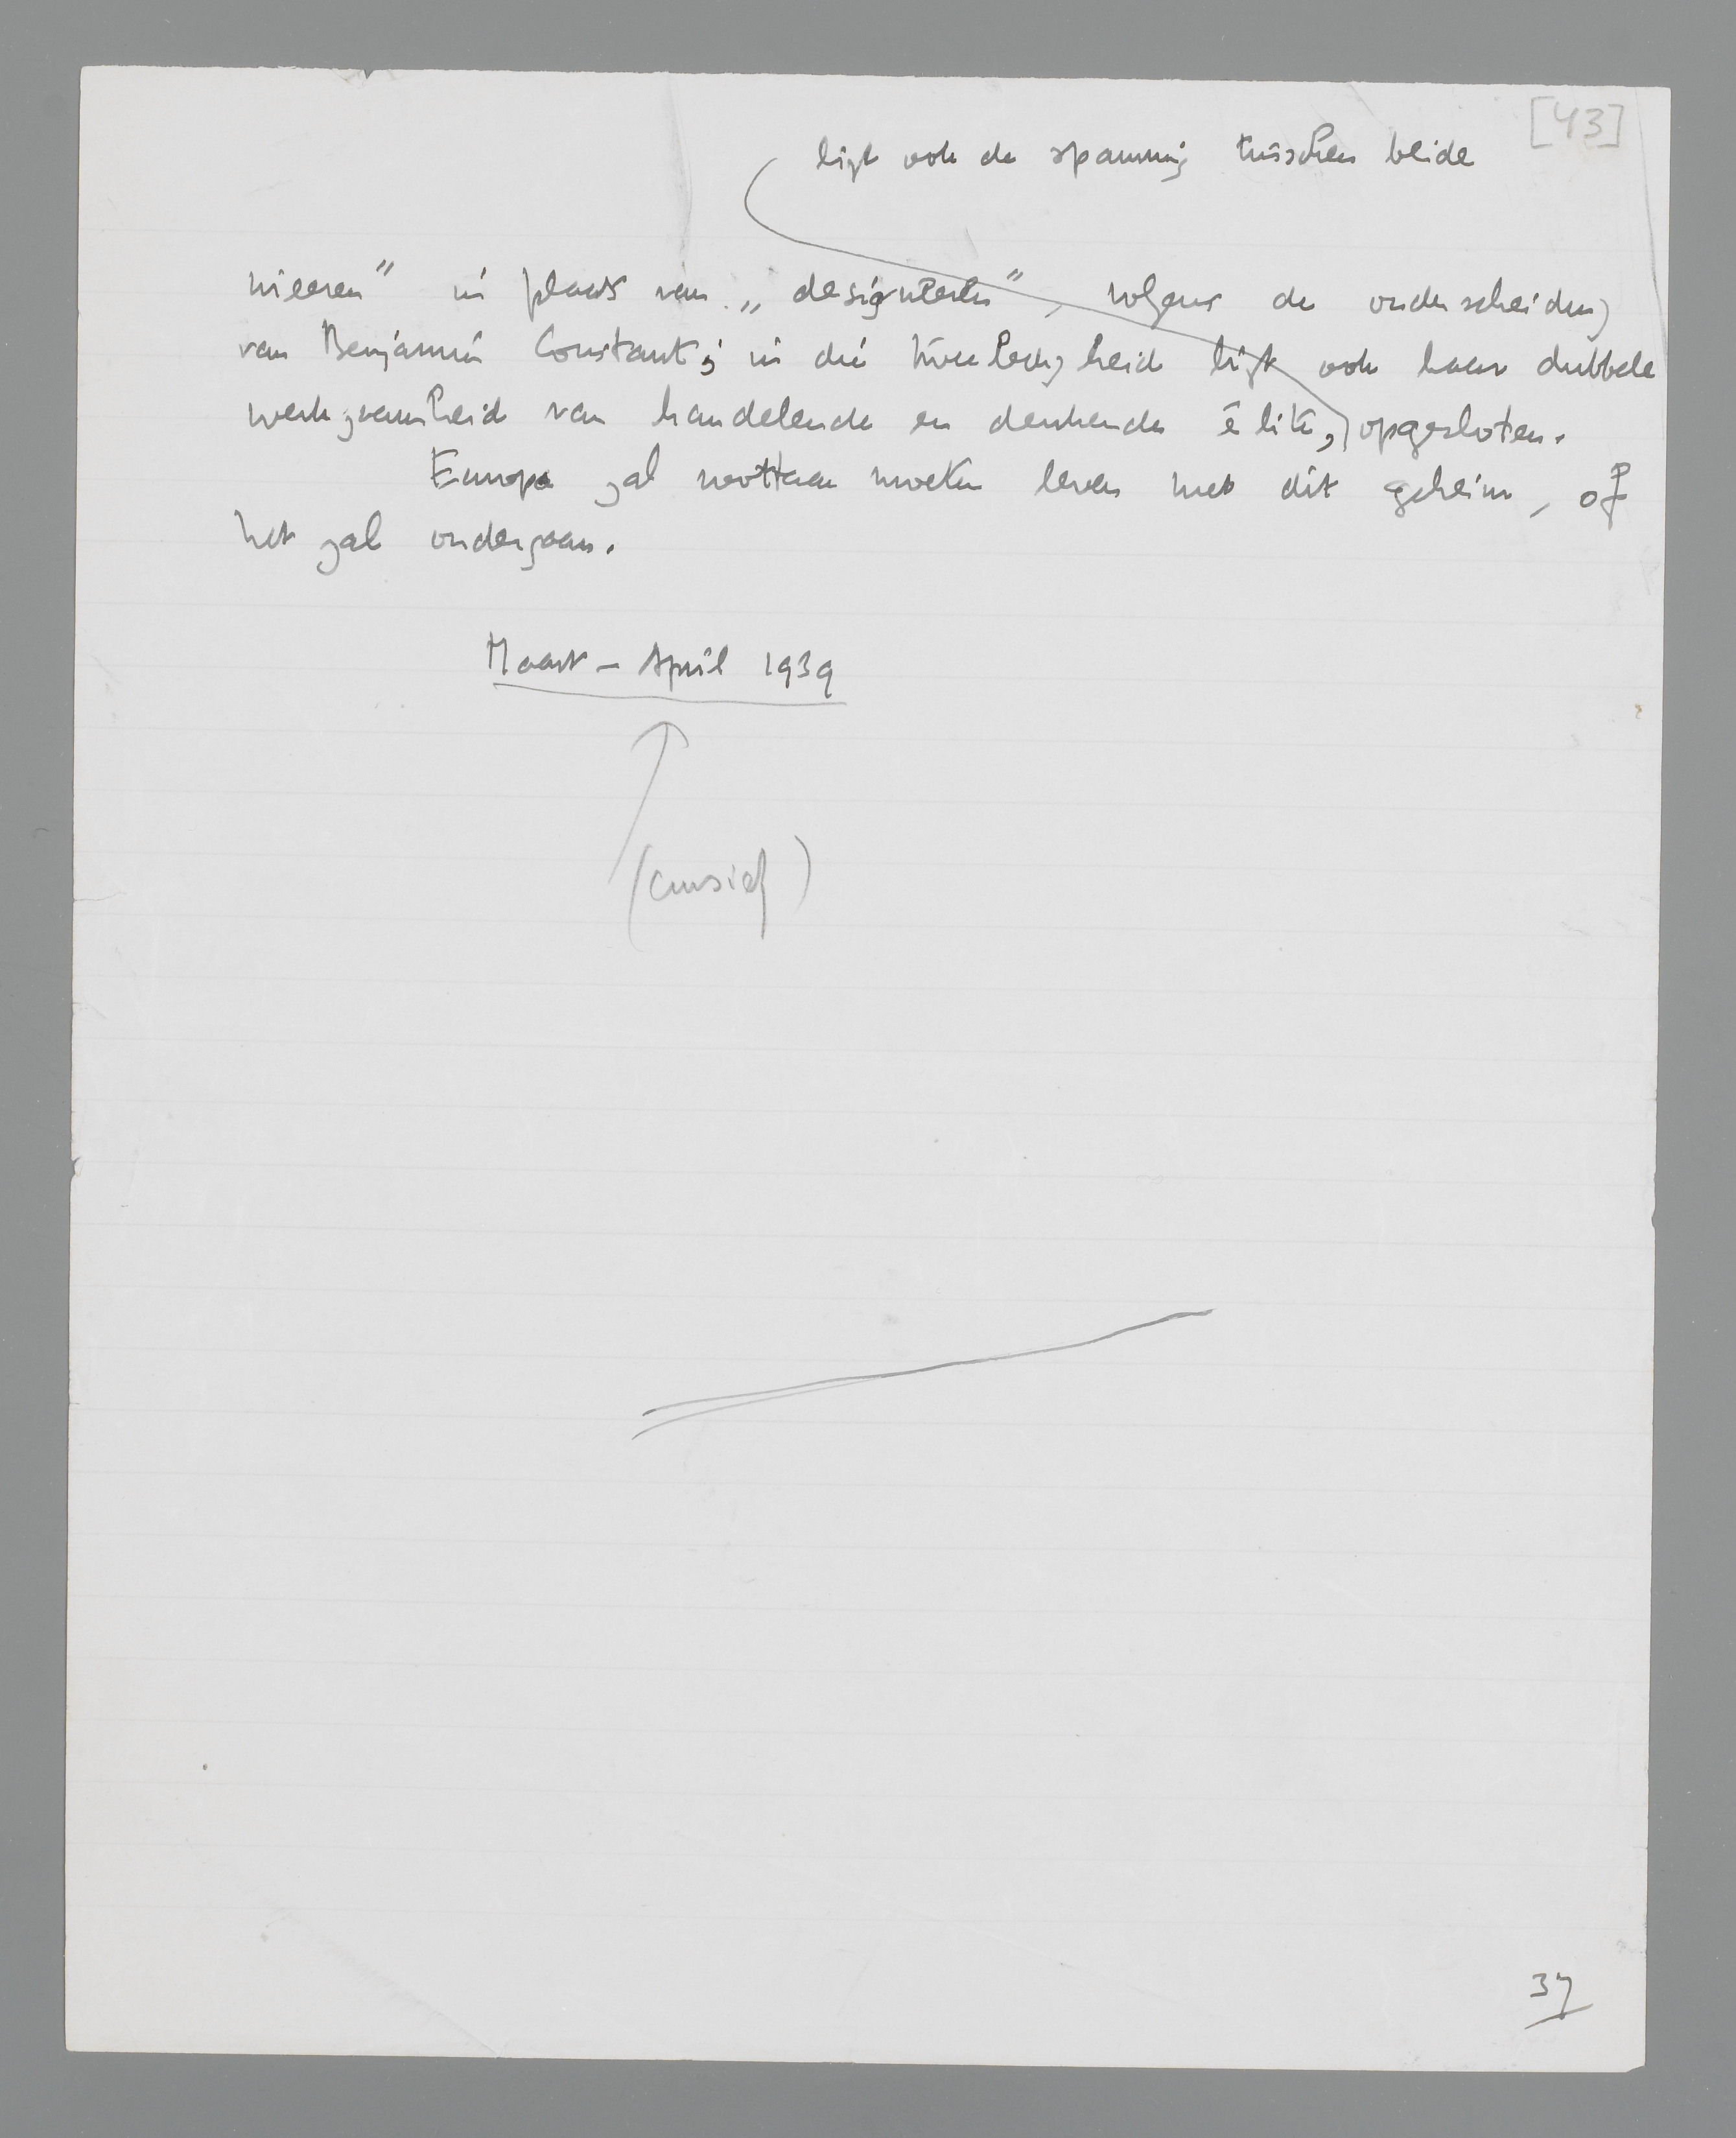 [43]
ligt ook de spanning tusschen beide
nieeren” in plaats van „designeeren”, volgens de onderscheiding
van Benjamin Constant; in die tweeledigheid ligt ook haar dubbele
werkzaamheid van handelende en denkende élite, opgesloten.
Europa zal voortaan moeten leven met dit geheim, of
het zal ondergaan.
Maart – April 1939
(cursief)
37